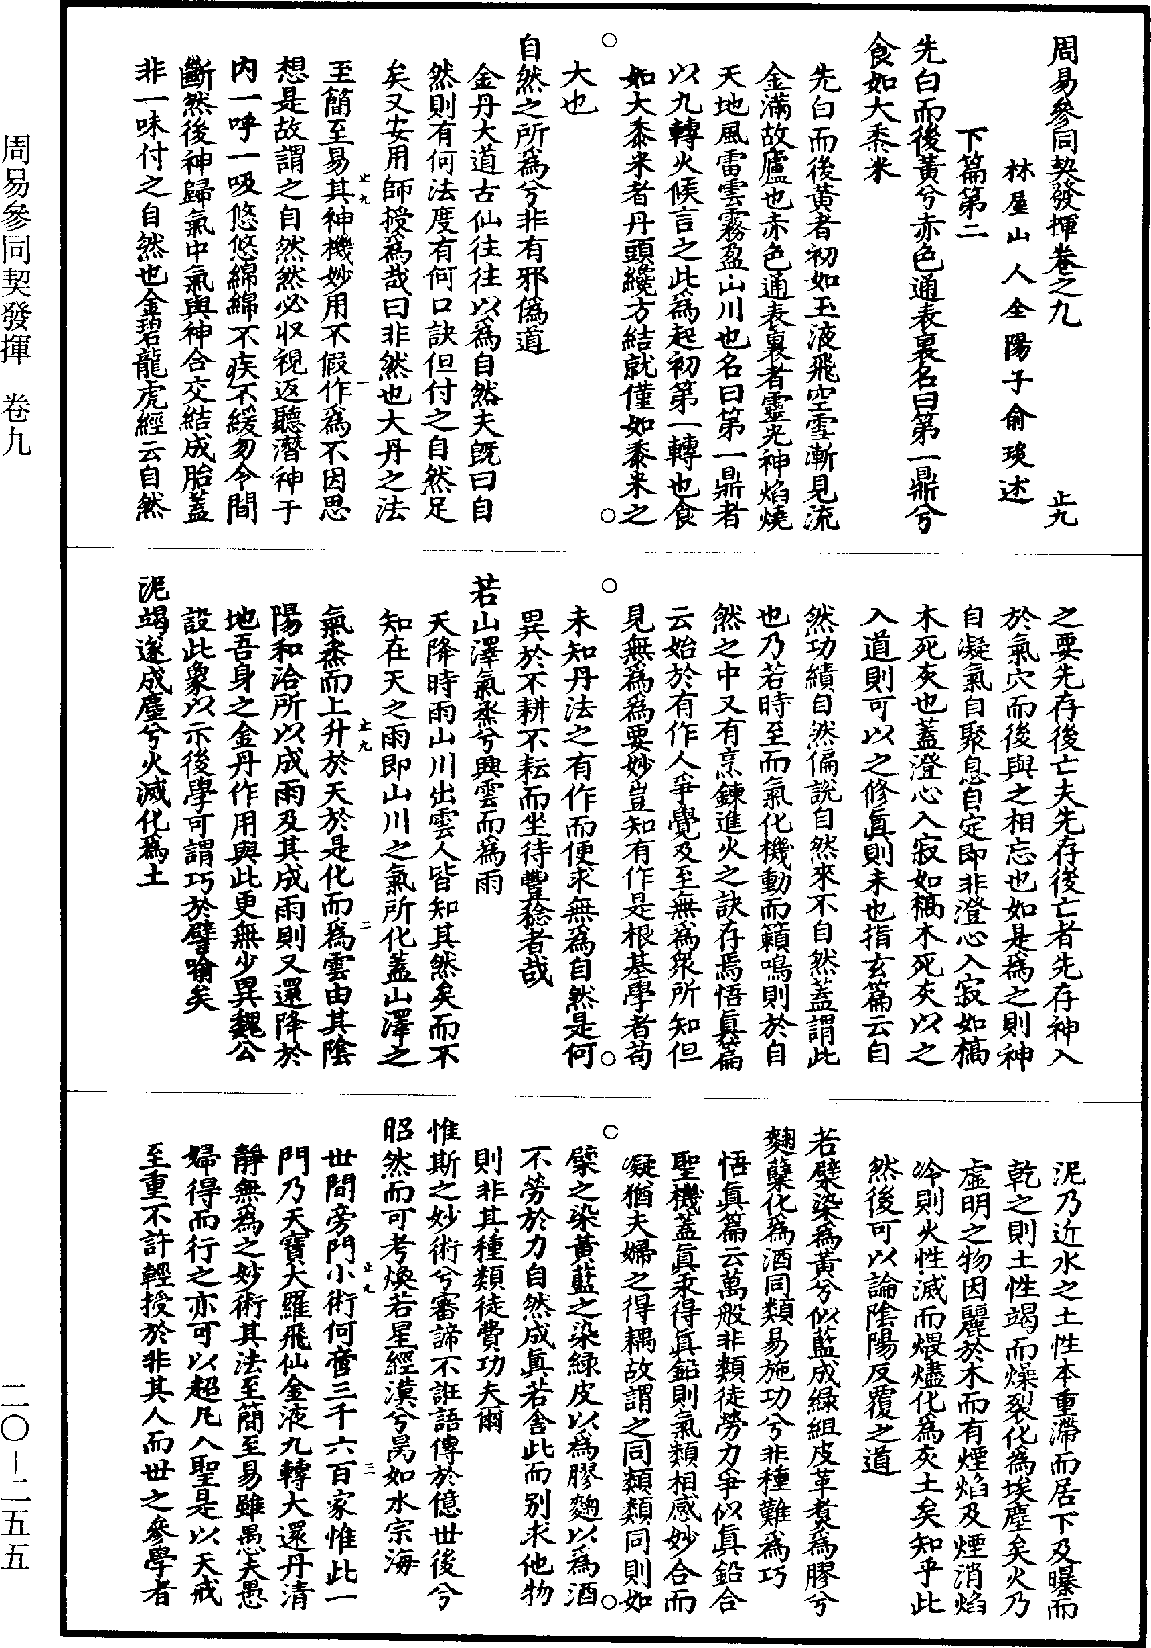 周易參同契發揮卷之九 止九
林屋山人全陽子俞琰述
下篇第二
先白而後黃兮赤色通表裏名曰第一鼎兮
食如大黍米
先白而後黃者初如玉液飛空雪漸見流
金滿故廬也赤色通表裏者靈光神焰燒
天地風雷雲霧盈山川也名曰第一鼎者
以九轉火候言之此爲起初第一轉也食
如大黍米者丹頭纔方結就僅如黍米之
大也
自然之所爲兮非有邪僞道
金丹大道古仙往往以爲自然夫既曰自
然則有何法度有何口訣但付之自然足
矣又安用師授爲哉曰非然也大丹之法
至簡至易其神機妙用不假作爲不因思
想是故謂之自然然必收視返聽潛神于
內一呼一吸悠悠綿綿不疾不緩勿令間
斷然後神歸氣中氣與神合交結成胎蓋
非一味付之自然也金碧龍虎經云自然
之要先存後亡夫先存後亡者先存神入
於氣穴而後與之相忘也如是爲之則神
自凝氣自聚息自定即非澄心入寂如槁
木死灰也蓋澄心入寂如槁木死灰以之
入道則可以之修眞則未也指玄篇云自
然功績自然偏說自然來不自然蓋謂此
也乃若時至而氣化機動而籟鳴則於自
然之中又有烹鍊進火之訣存焉悟眞篇
云始於有作人爭覺及至無爲衆所知但
見無爲爲要妙豈知有作是根基學者苟
未知丹法之有作而便求無爲自然是何
異於不耕不耘而坐待豐稔者哉
若山澤氣烝兮興雲而爲雨
天降時雨山川出雲人皆知其然矣而不
知在天之雨即山川之氣所化蓋山澤之
氣烝而上升於天於是化而爲雲由其陰
陽和洽所以成雨及其成雨則又還降於
地吾身之金丹作用與此更無少異魏公
設此象以示後學可謂巧於譬喻矣
泥竭遂成塵兮火滅化爲土
泥乃近水之土性本重滯而居下及曝而
乾之則土性竭而燥裂化爲埃塵矣火乃
虛明之物因麗於木而有煙焰及煙消焰
冷則火性滅而煨燼化爲灰土矣知乎此
然後可以論陰陽反覆之道
若檗染爲黃兮似藍成綠組皮革煑爲膠兮
麴糵化爲酒同類易施功兮非種難爲巧
悟眞篇云萬般非類徒勞力爭似眞鉛合
聖機蓋眞汞得眞鉛則氣類相感妙合而
凝猶夫婦之得耦故謂之同類類同則如
檗之染黃藍之染綠皮以爲膠麴以爲酒
不勞於力自然成眞若舍此而別求他物
則非其種類徒費功夫爾
惟斯之妙術兮審諦不誑語傳於億世後兮
昭然而可考煥若星經漢兮昺如水宗海
世間旁門小術何啻三千六百家惟此一
門乃天寶大羅飛仙金液九轉大還丹清
靜無爲之妙術其法至簡至易雖愚夫愚
婦得而行之亦可以超凡入聖是以天戒
至重不許輕授於非其人而世之參學者
止九 一
止九 二
止九 三
周易參同契發揮 卷九
二〇－二五五